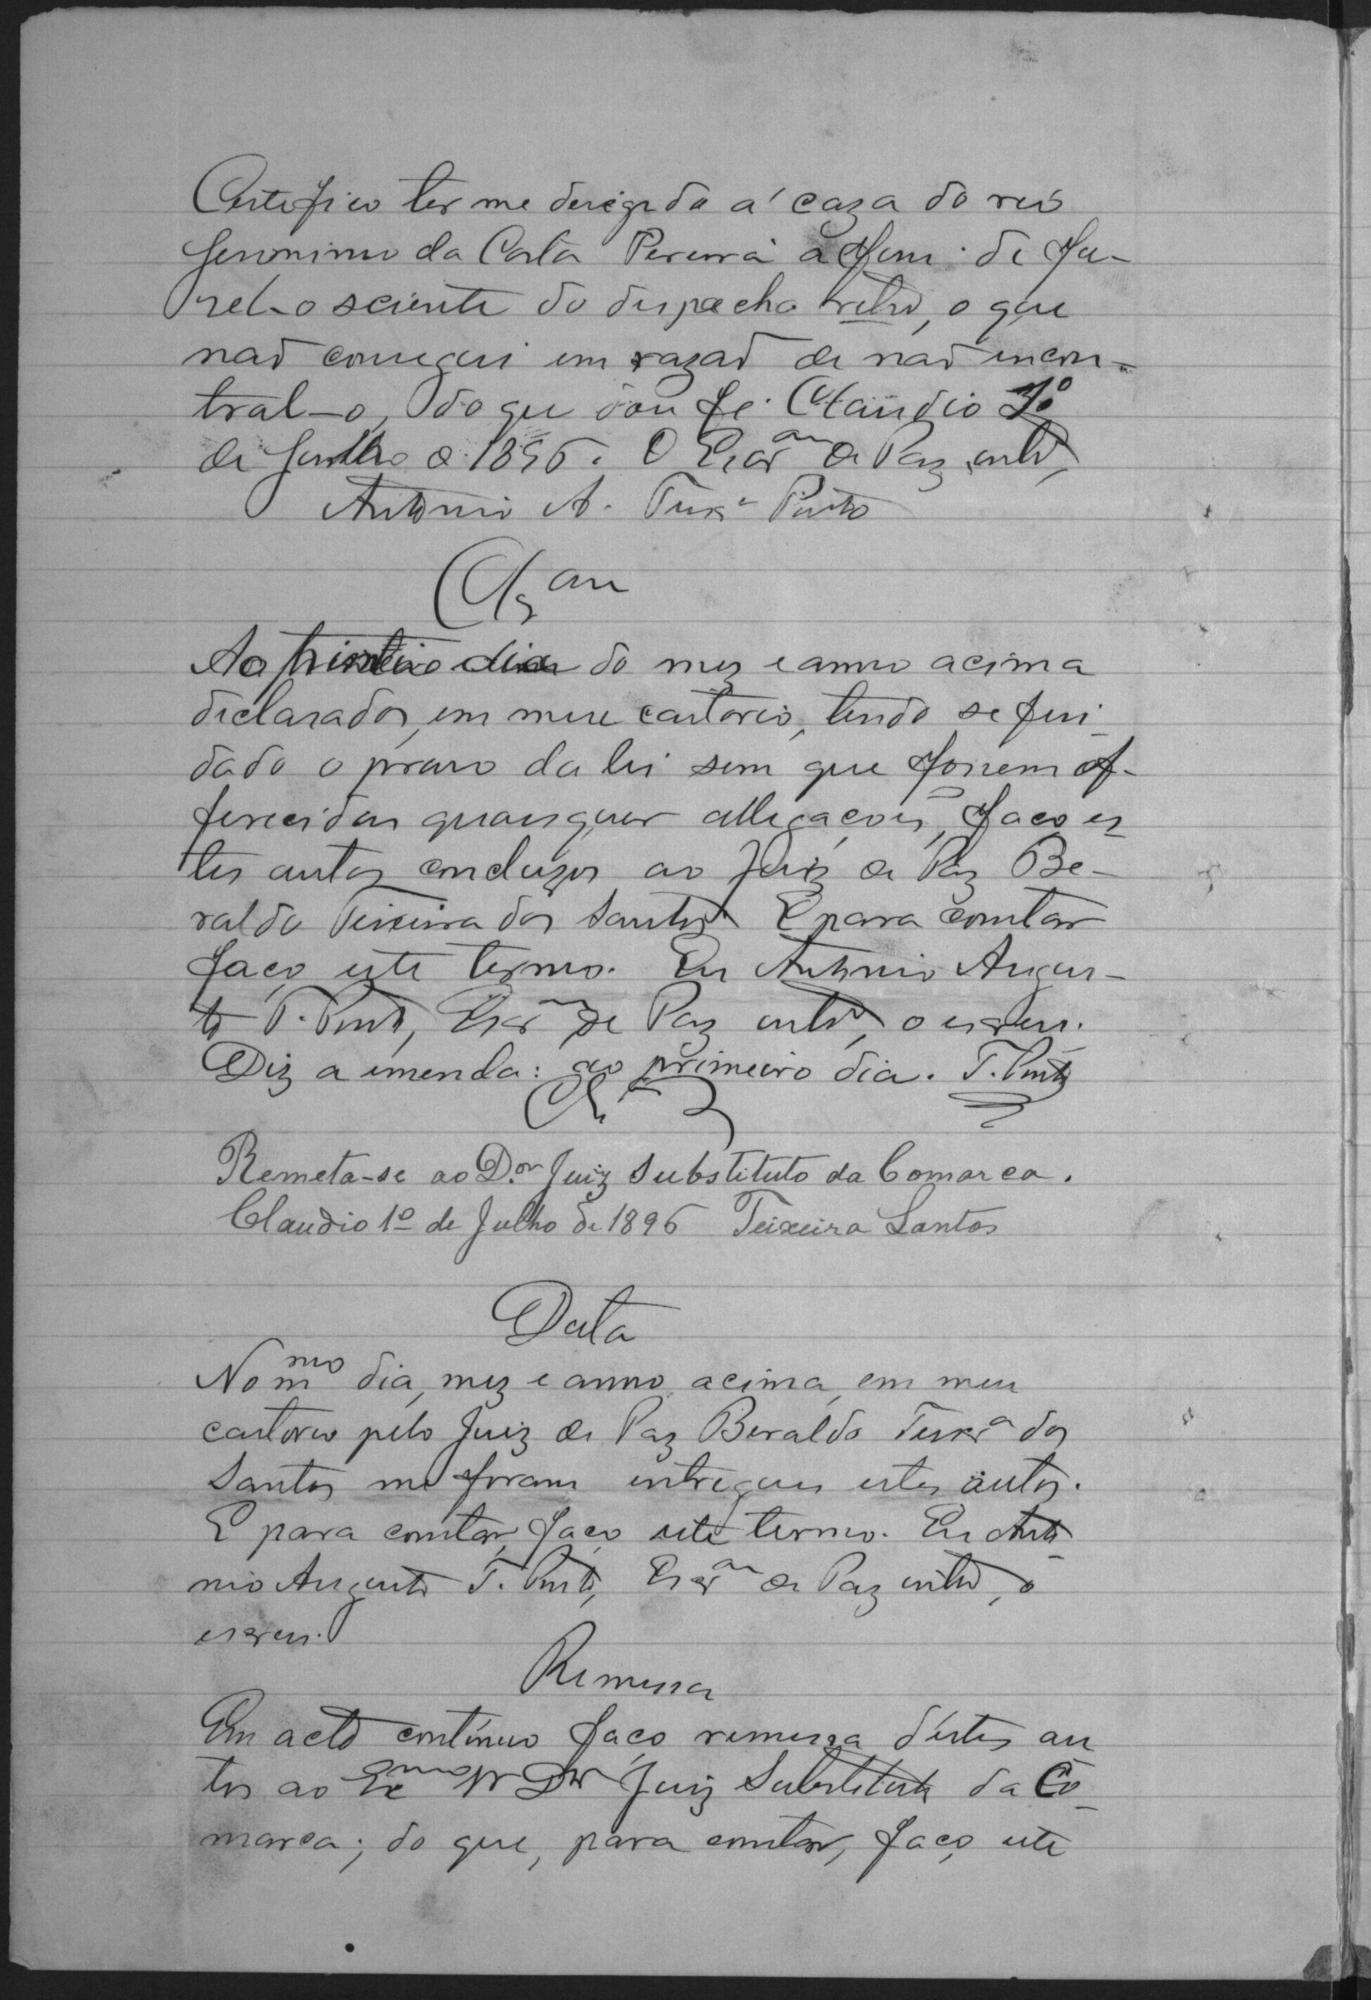 Certifico ter me derigido a' caza do reó
Jeronimo da Costa Pereira afim de fa-
zel-o sciente do despacho retro, o que
naõ consegui em razaõ de naõ encon-
tral-o, do que dou fe. Claudio 1º
de Julho de 1896. O Escram de Paz intº,
Antonio A. Teixra Pinto
Clsam
Ao primeiro dia do mez e anno acima
declarados, em meu cartorio, tendo se fin-
dado o prazo da lei sem que fossem of-
ferecidas quaesquer allegações, faço es-
tes autos concluzos ao Juiz de Paz Be-
raldo Teixeira dos Santos. E para constar
faço este termo. Eu Antonio Augus-
to T. Pinto, Escram de Paz intº, o escrevi.
Diz a emenda: ao primeiro dia. T. Pinto
Remeta-se ao D.or Juiz Substituto da Comarca.
Claudio 1º de Julho de 1896 Teixeira Santos
Data
No mmo dia, mez e anno acima, em meu
cartorio pelo Juiz de Paz Beraldo Teixra dos
Santos me foram entregues estes autos.
E para constar, faço este termo. Eu Anto-
nio Augusto T. Pinto, Escram de Paz intº, o
escrevi.
Remessa
Em acto continuo faço remessa d'estes au
tos ao Exmo Sr Dr Juiz Substituto da Co-
marca; do que, para constar, faço este